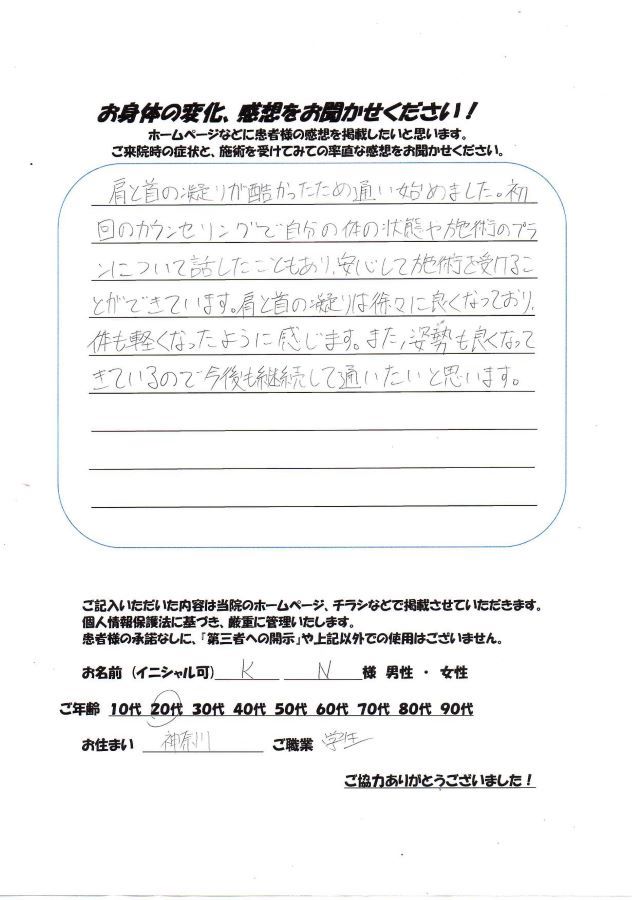 お身体の変化、感想をお聞かせください！
ホームページなどに患者様の感想を掲載したいと思います。
ご来院時の症状と、施術を受けてみての率直な感想をお聞かせください。
肩と首の凝りが酷かったため通い始めました。初
回のカウンセリングで自分の体の状態や施術のプラ
ンについて話したこともあり、安心して施術を受けるこ
とができています。肩と首の凝りは徐々に良くなっており、
体も軽くなったように感じます。また、姿勢も良くなって
きているので今後も継続して通いたいと思います。
ご記入いただいた内容は当院のホームページ、チラシなどで掲載させていただきます。
個人情報保護法に基づき、厳重に管理いたします。
患者様の承諾なしに、「第三者への開示」や上記以外での使用はございません。
お名前（イニシャル可） K N 様 男性 ・ 女性
ご年齢 10代 20代 30代 40代 50代 60代 70代 80代 90代
お住まい 神奈川 ご職業 学生
ご協力ありがとうございました！